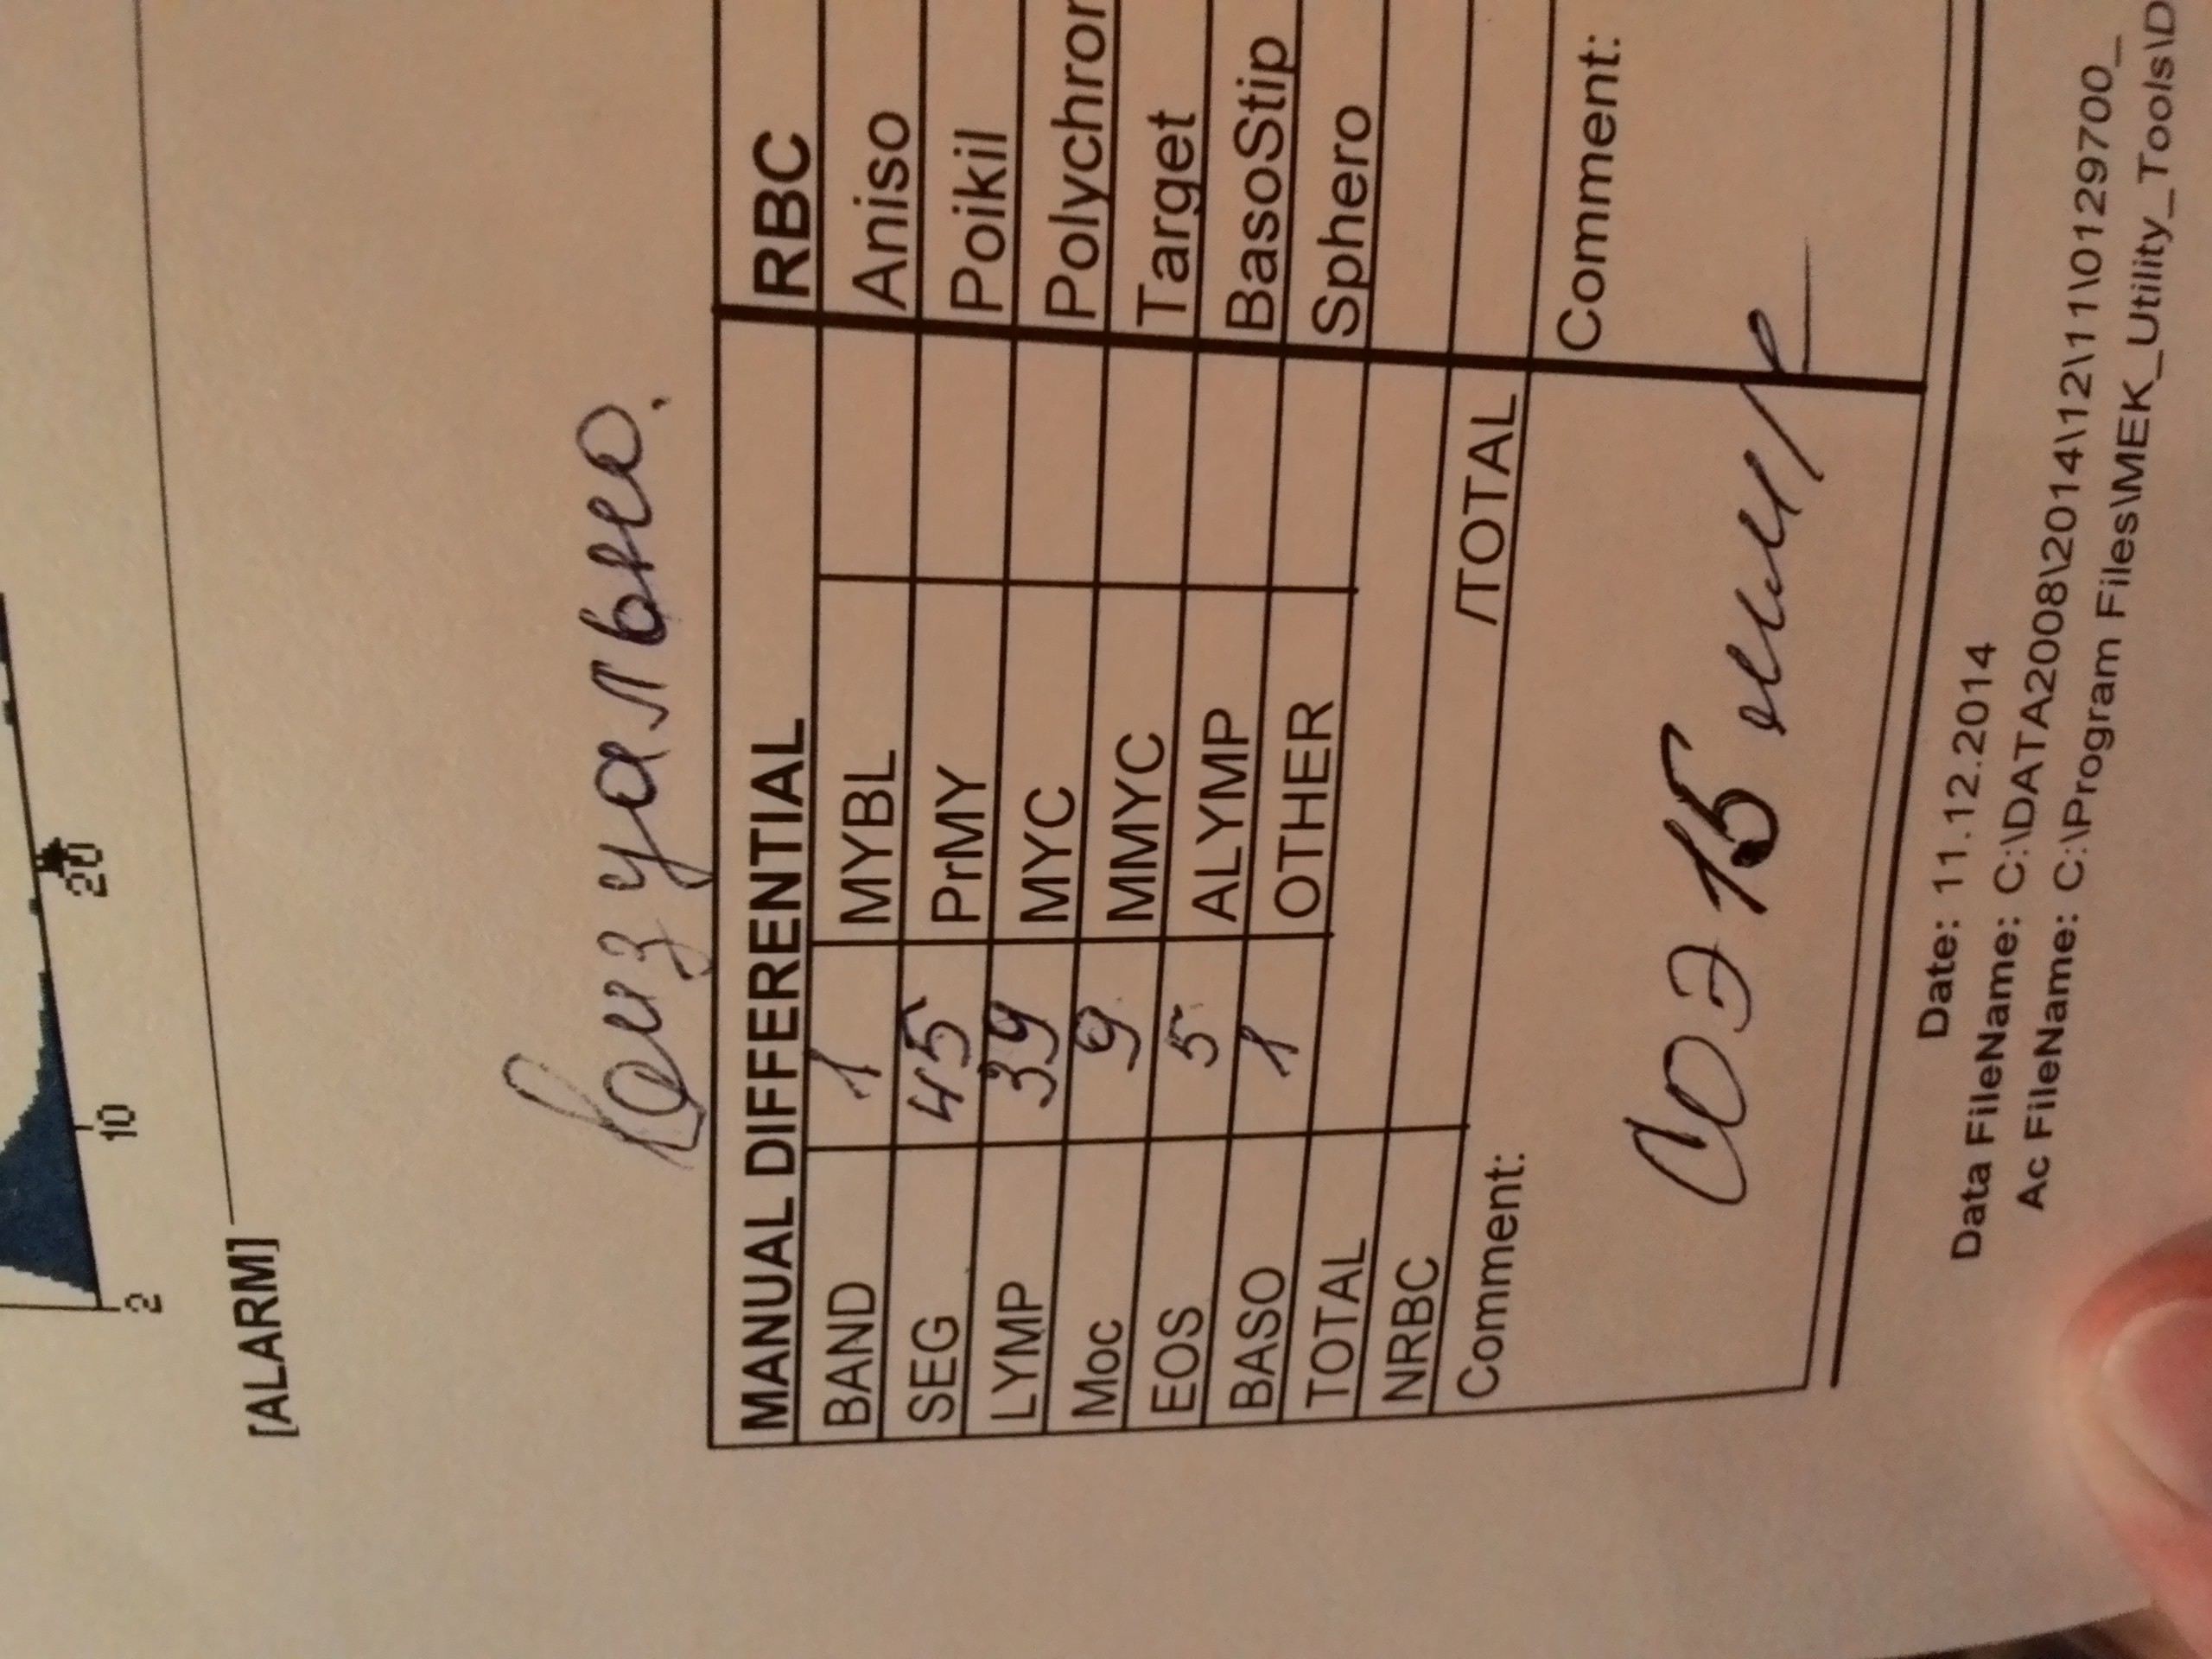 20
10
2
[ALARM]
Визуально.
MANUAL DIFFERENTIAL RBC
BAND 1 MYBL Aniso
SEG 45 PrMY Poikil
LYMP 39 MYC Polychror
Moc 9 MMYC Target
EOS 5 ALYMP BasoStip
BASO 1 OTHER Sphero
TOTAL
NRBC /TOTAL
Comment: Comment:
СОЭ 15 мм/г
Date: 11.12.2014
Data FileName: C:\DATA2008\2014\12\11\0129700_
Ac FileName: C:\Program Files\MEK_Utility_Tools\D